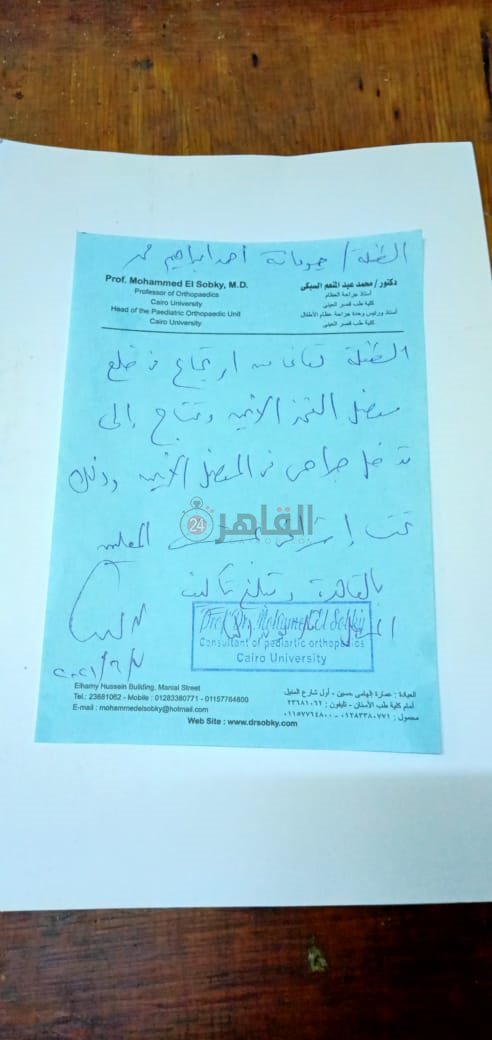 الطفلة / جومانة أحمد ابراهيم محمد
Prof. Mohammed El Sobky, M.D.
Professor of Orthopaedics
Cairo University
Head of the Paediatric Orthopaedic Unit
Cairo University
دكتور/ محمد عبد المنعم السبكى
أستاذ جراحة العظام
كلية طب قصر العينى
أستاذ ورئيس وحدة جراحة عظام الأطفال
كلية طب قصر العينى
الطفلة تعانى من ارتجاع فى خلع
مفصل الفخذ الأيمن وتحتاج إلى
تدخل جراحى فى المفصل الأيمن وذلك
تحت
القاهر 24
بالقاهرة وتبلغ تكاليف
Prof. Dr. Mohamed El Sobky
Consultant of pediartic orthopaedics
Cairo University
Elhamy Hussein Building, Manial Street
Tel.: 23681062 - Mobile : 01283380771 - 01157764800
E-mail : mohammedelsobky@hotmail.com
العيادة : عمارة إلهامى حسين - أول شارع المنيل
أمام كلية طب الأسنان - تليفون : ٢٣٦٨١٠٦٢
محمول : ٠١٢٨٣٣٨٠٧٧١ - ٠١١٥٧٧٦٤٨٠٠
Web Site : www.drsobky.com